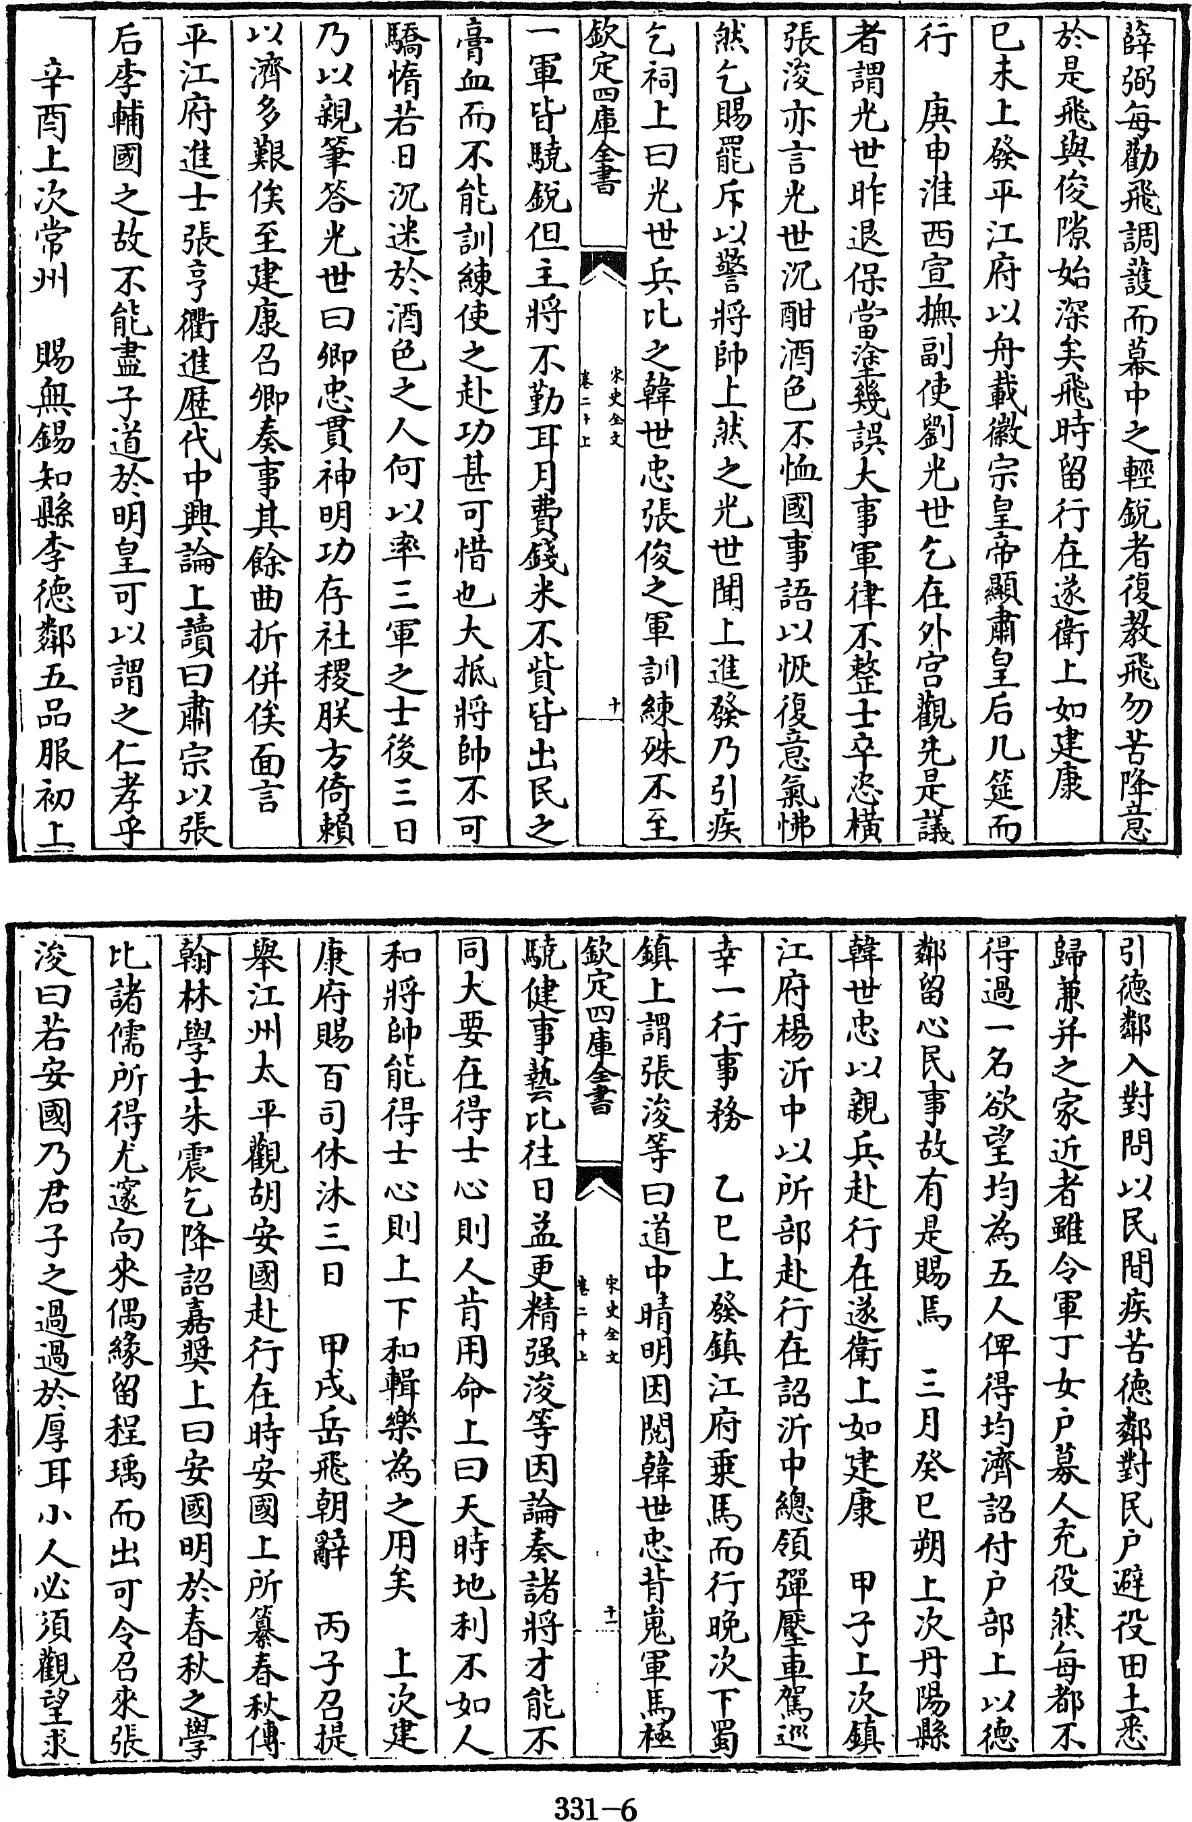 薛弼每勸飛調護而幕中之輕銳者復教飛勿苦降意
於是飛與俊隙始深矣飛時留行在遂衛上如建康
己未上發平江府以舟載徽宗皇帝顯肅皇后几筵而
行　庚申淮西宣撫副使劉光世乞在外宮觀先是議
者謂光世昨退保當塗幾誤大事軍律不整士卒恣橫
張浚亦言光世沉酣酒色不恤國事語以恢復意氣怫
然乞賜罷斥以警將帥上然之光世聞上進發乃引疾
乞祠上曰光世兵比之韓世忠張俊之軍訓練殊不至
欽定四庫全書　宋史全文　卷二十上　十
一軍皆驍銳但主將不勤耳月費錢米不貲皆出民之
膏血而不能訓練使之赴功甚可惜也大抵將帥不可
驕惰若日沉迷於酒色之人何以率三軍之士後三日
乃以親筆答光世曰卿忠貫神明功存社稷朕方倚賴
以濟多艱俟至建康召卿奏事其餘曲折併俟面言
平江府進士張亨衢進歷代中興論上讀曰肅宗以張
后李輔國之故不能盡子道於明皇可以謂之仁孝乎
辛酉上次常州　賜無錫知縣李德鄰五品服初上
引德鄰入對問以民間疾苦德鄰對民户避役田土悉
歸兼并之家近者雖令軍丁女户募人充役然每都不
得過一名欲望均為五人俾得均濟詔付户部上以德
鄰留心民事故有是賜焉　三月癸巳朔上次丹陽縣
韓世忠以親兵赴行在遂衛上如建康　甲子上次鎮
江府楊沂中以所部赴行在詔沂中總領彈壓車駕巡
幸一行事務　乙巳上發鎮江府乘馬而行晚次下蜀
鎮上謂張浚等曰道中晴明因閱韓世忠背嵬軍馬極
欽定四庫全書　宋史全文　卷二十上　十一
驍健事藝比往日益更精强浚等因論奏諸將才能不
同大要在得士心則人肯用命上曰天時地利不如人
和將帥能得士心則上下和輯樂為之用矣　上次建
康府賜百司休沐三日　甲戌岳飛朝辭　丙子召提
舉江州太平觀胡安國赴行在時安國上所纂春秋傳
翰林學士朱震乞降詔嘉奬上曰安國明於春秋之學
比諸儒所得尤邃向來偶緣留程瑀而出可令召來張
浚曰若安國乃君子之過過於厚耳小人必須觀望求
331-6